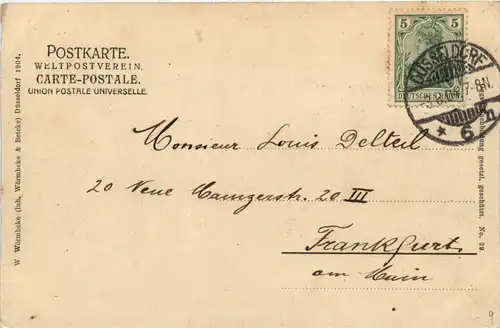 POSTKARTE.
WELTPOSTVEREIN.
CARTE-POSTALE.
UNION POSTALE UNIVERSELLE.
5 5
DEUTSCHES REICH
DÜSSELDORF
7-8N.
* 6 n
Monsieur Louis Delteil
20 Neue Mainzerstr. 20 III
Frankfurt
am Main
W Wörmbcke (Inh. Wörmbcke & Beteke) Düsseldorf 1904.
gesetzl. geschützt. No. 29
9